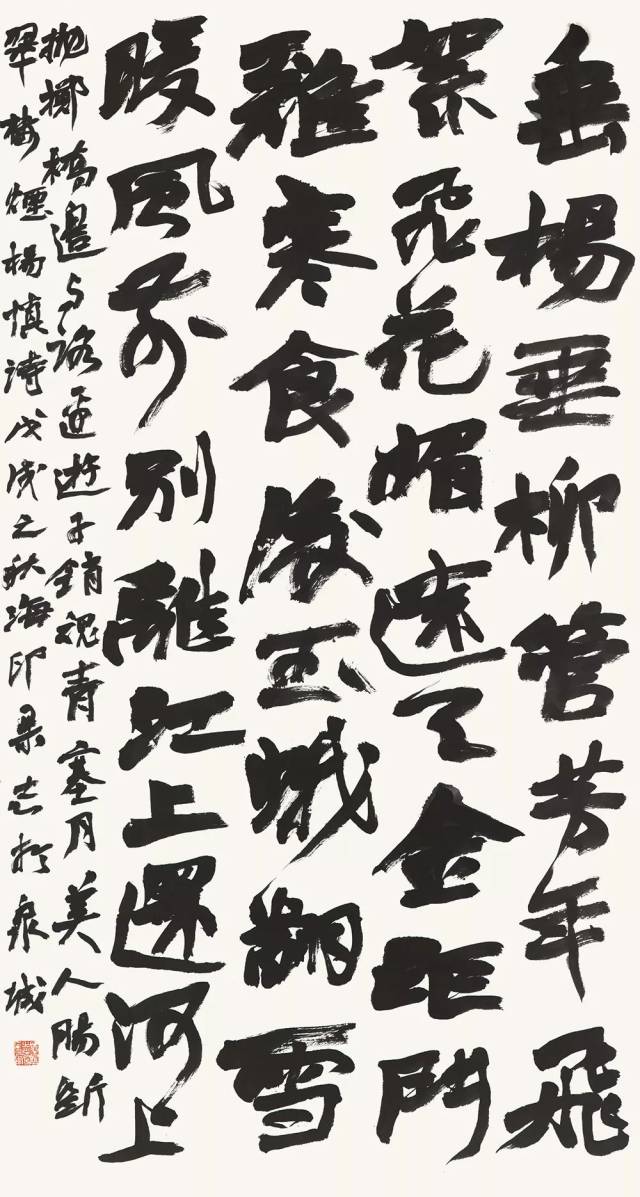 垂楊垂柳管芳年飛
絮飛花媚遠天金距鬥
雞寒食後玉蛾翻雪
暖風前別離江上還河上
拋擲橋邊與路邊遊子銷魂青塞月美人腸斷
翠樓煙楊慎詩戊戌之秋海印志於泉城